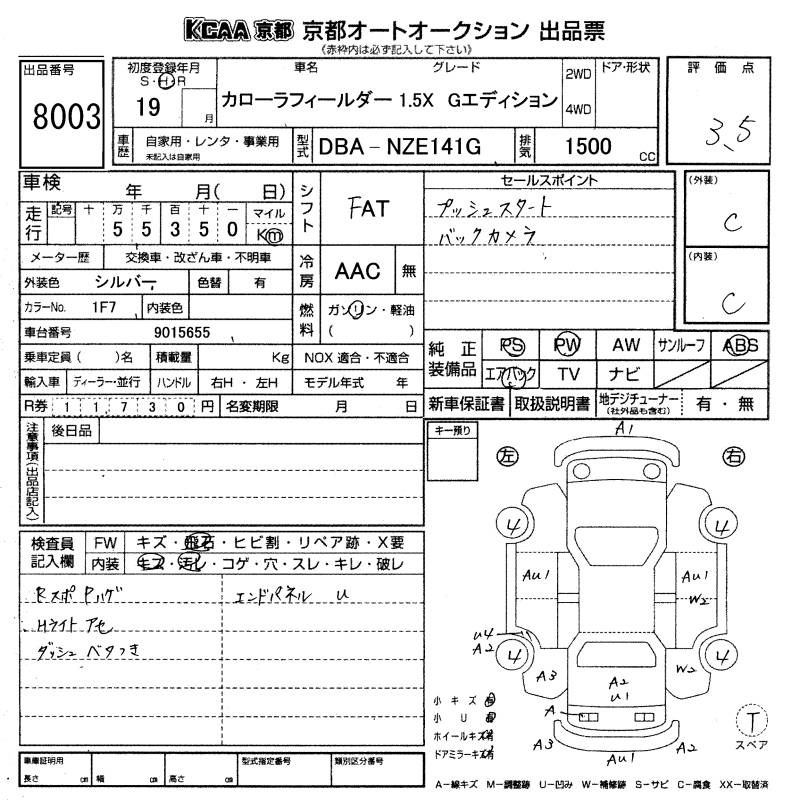 KCAA 京都 京都オートオークション 出品票
《赤枠内は必ず記入して下さい》
出品番号
8003
初度登録年月
S・H・R
19
月
車名
グレード
カローラフィールダー 1.5X Gエディション
2WD
4WD
ドア・形状
評価点
3.5
車歴
自家用・レンタ・事業用
未記入は自家用
型式
DBA－NZE141G
排気
1500
CC
車検
年 月( 日)
走行
記号 十 万 千 百 十 一
5 5 3 5 0
マイル
Km
メーター歴
交換車・改ざん車・不明車
外装色
シルバー
色替
有
カラーNo.
1F7
内装色
車台番号
9015655
乗車定員( )名
積載量
Kg
輸入車
ディーラー・並行
ハンドル
右H・左H
R券
11,730円
名変期限
月 日
シフト
FAT
冷房
AAC
無
燃料
ガソリン・軽油
( )
NOX 適合・不適合
モデル年式 年
セールスポイント
プッシュスタート
バックカメラ
(外装)
C
(内装)
C
純正装備品
PS
PW
AW
サンルーフ
ABS
エアバック
TV
ナビ
新車保証書
取扱説明書
地デジチューナー
(社外品も含む)
有・無
注意事項(出品店記入)
後日品
検査員記入欄
FW
キズ・飛石・ヒビ割・リペア跡・X要
内装
キズ・汚レ・コゲ・穴・スレ・キレ・破レ
Rスポ Pハゲ
エンドパネル U
Hライト アセ
ダッシュ ベタつき
キー預り
左
右
A1
4
4
AU1
AU1
W2
U4
A2
4
4
A3
A2
U1
W2
A
A3
AU1
A2
小キズ 有
小U 有
ホイールキズ 有
ドアミラーキズ 有
T
スペア
車庫証明用
長さ cm
幅 cm
高さ cm
型式指定番号
類別区分番号
A－線キズ M－調整跡 U－凹み W－補修跡 S－サビ C－腐食 XX－取替済